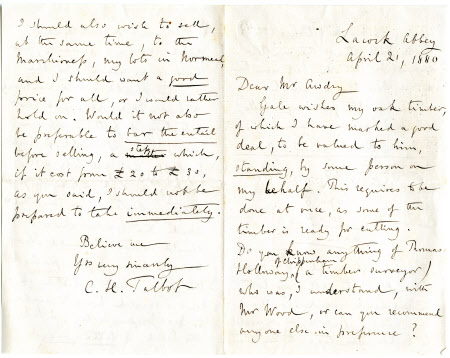 Lacock Abbey
April 21, 1880
Dear Mr Awdry
Gale wishes my oak timber,
of which I have marked a good
deal, to be valued to him,
standing, by some person on
my behalf. This requires to be
done at once, as some of the
timber is ready for cutting.
Do you know anything of Thomas
of Chippenham
Holloway, (a timber surveyor)
who was, I understand, with
Mr Wood, or can you recommend
anyone else in preference?
I should also wish to sell,
at the same time, to the
Marchioness, my lots in
and I should want a good
price for all, or I would rather
hold on. Would it not also
be preferable to bar the entail
before selling, a step which,
if it cost from £20 to £30,
as you said, I should not be
prepared to take immediately.
Believe me
Yrs very sincerely
C. H. Talbot